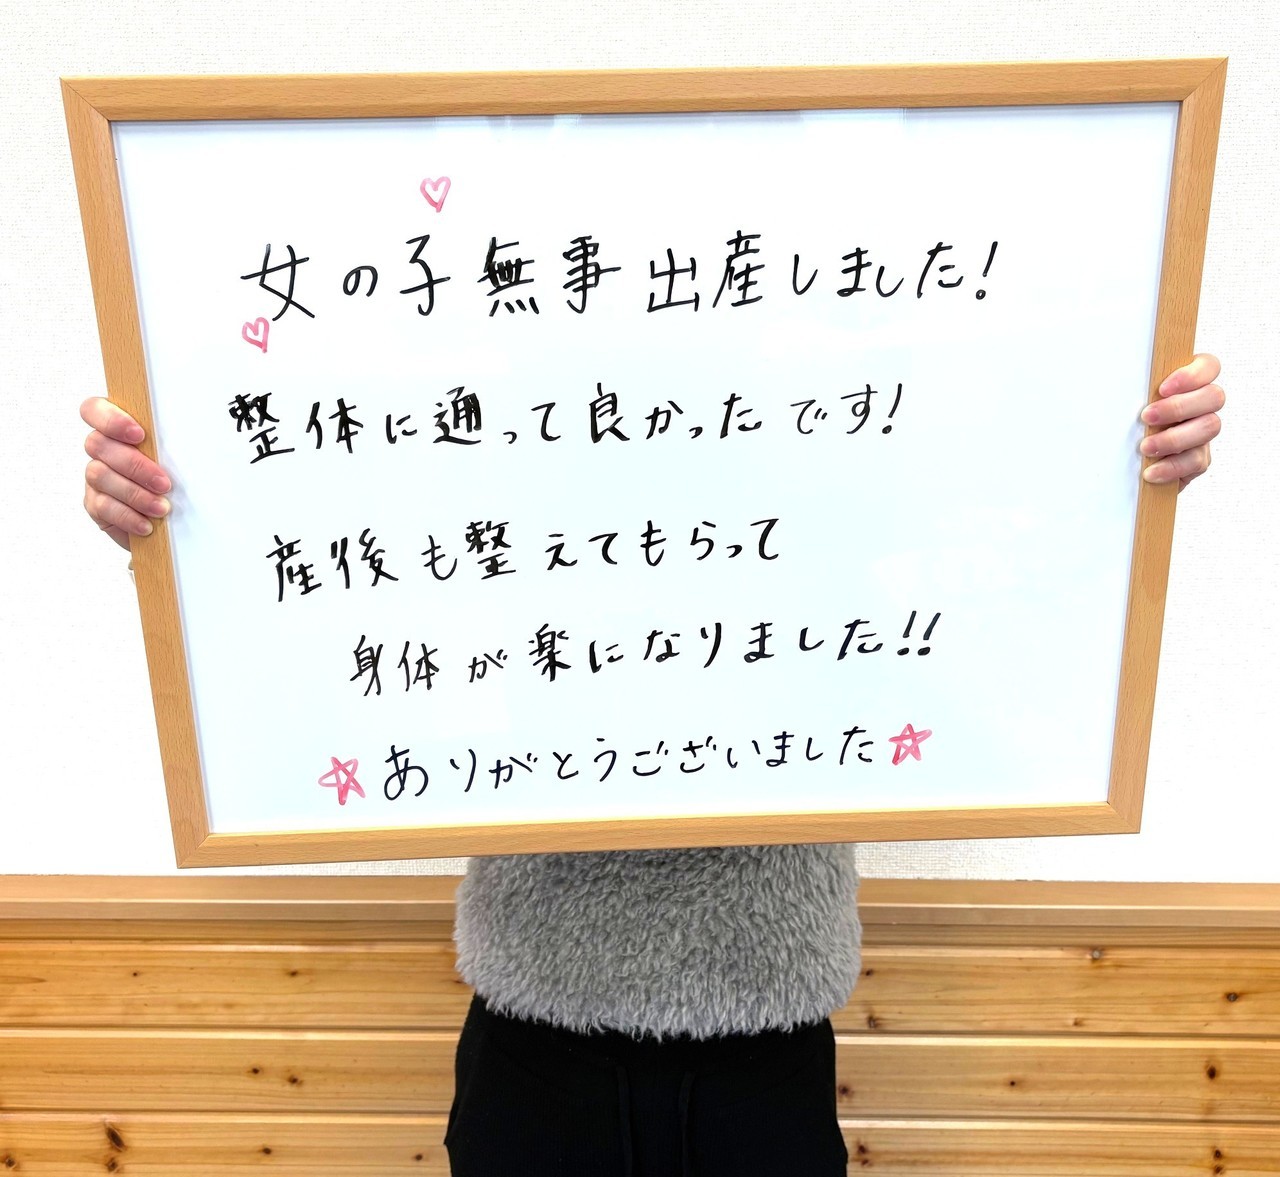 女の子無事出産しました!
整体に通って良かったです!
産後も整えてもらって
身体が楽になりました!!
☆ありがとうございました☆